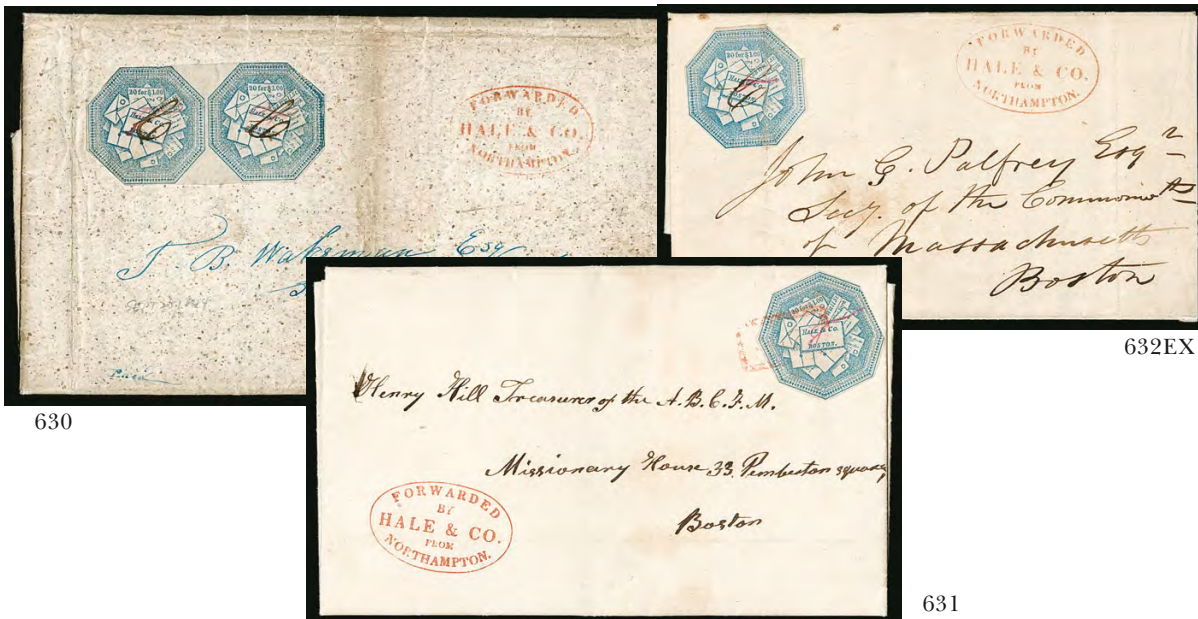 20 for $1.00
20 for $1.00
HALE & CO.
FORWARDED
BY
HALE & CO.
FROM
NORTHAMPTON.
T. B. Wakeman Esq
630
20 for $1.00
HALE & CO.
FORWARDED
BY
HALE & CO.
FROM
NORTHAMPTON.
John G. Palfrey Esqr
Secy. of the Commonwth
of Massachusetts
Boston
632EX
20 for $1.00
HALE & CO.
BOSTON.
Henry Hill Treasurer of the A.B.C.F.M.
Missionary House 33 Pemberton square,
Boston
FORWARDED
BY
HALE & CO.
FROM
NORTHAMPTON.
631